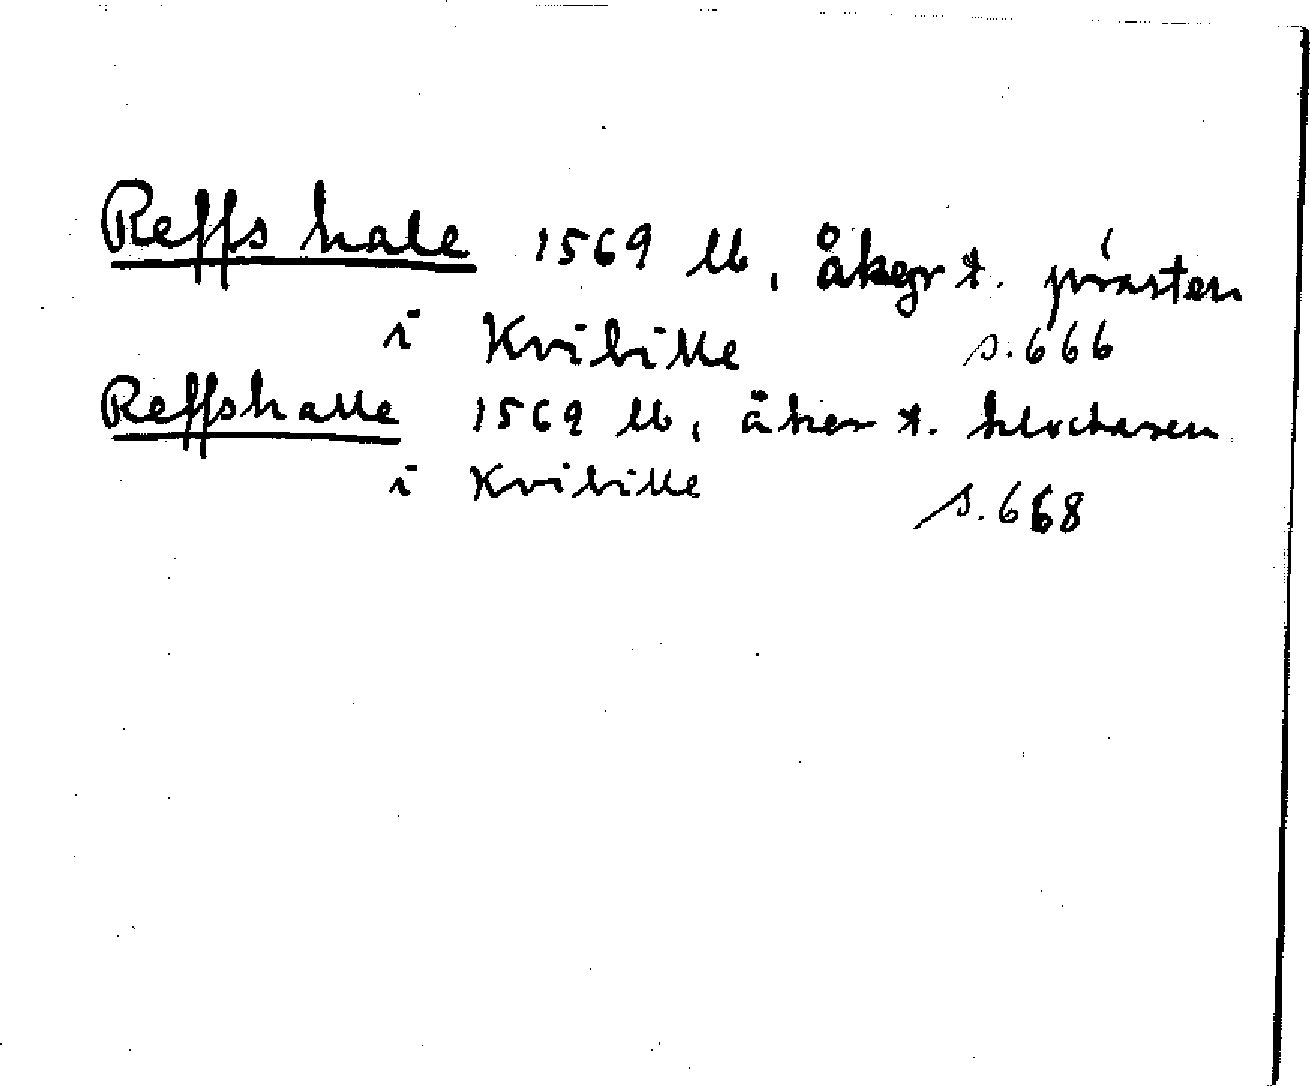 Reffs hale 1569 lb, åkegr t. prästen
i Kvibille s.666
Reffshalle 1569 lb, åker t. klockaren
i Kvibille s.668